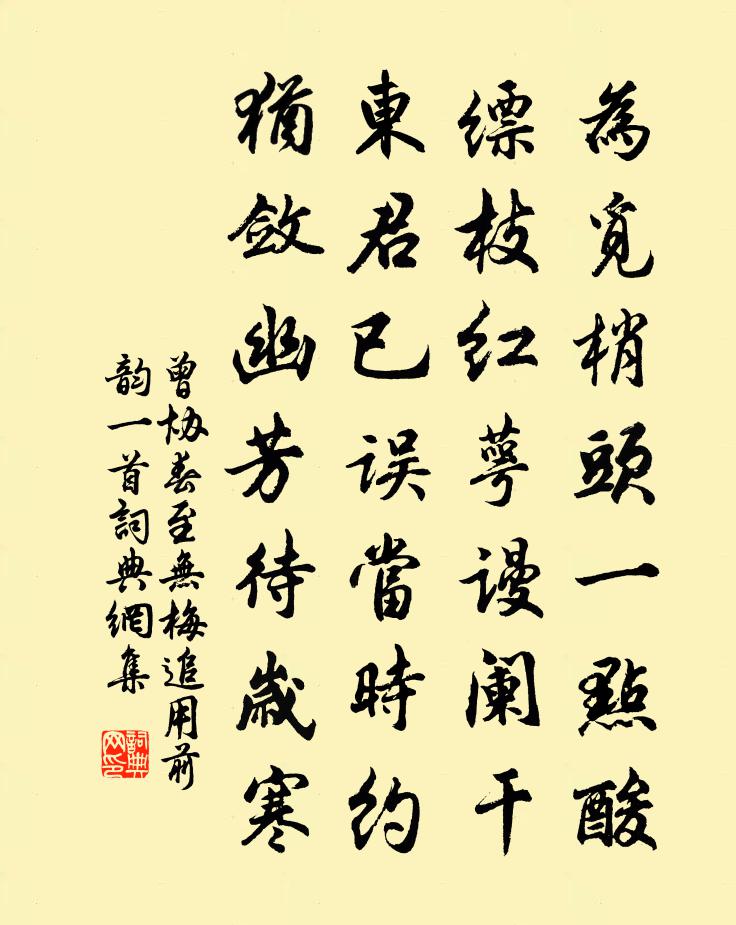 為覓梢頭一點酸
縹枝紅萼謾闌干
東君已誤當時約
猶斂幽芳待歲寒
曾協春至無梅追用前
韵一首詞典網集
詞典
网印